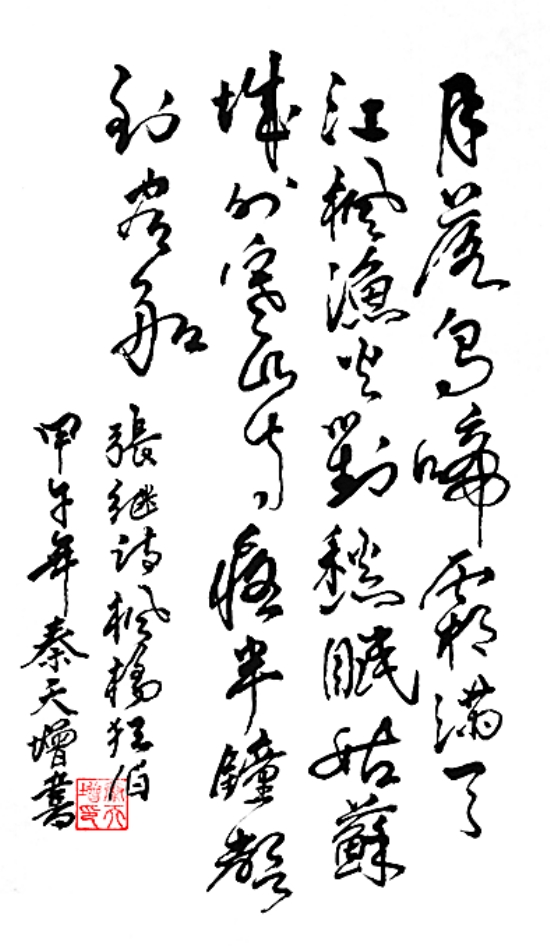 月落烏啼霜滿天
江楓漁火對愁眠姑蘇
城外寒山寺夜半鐘聲
到客船
張継詩楓橋夜泊
甲午年秦天增書